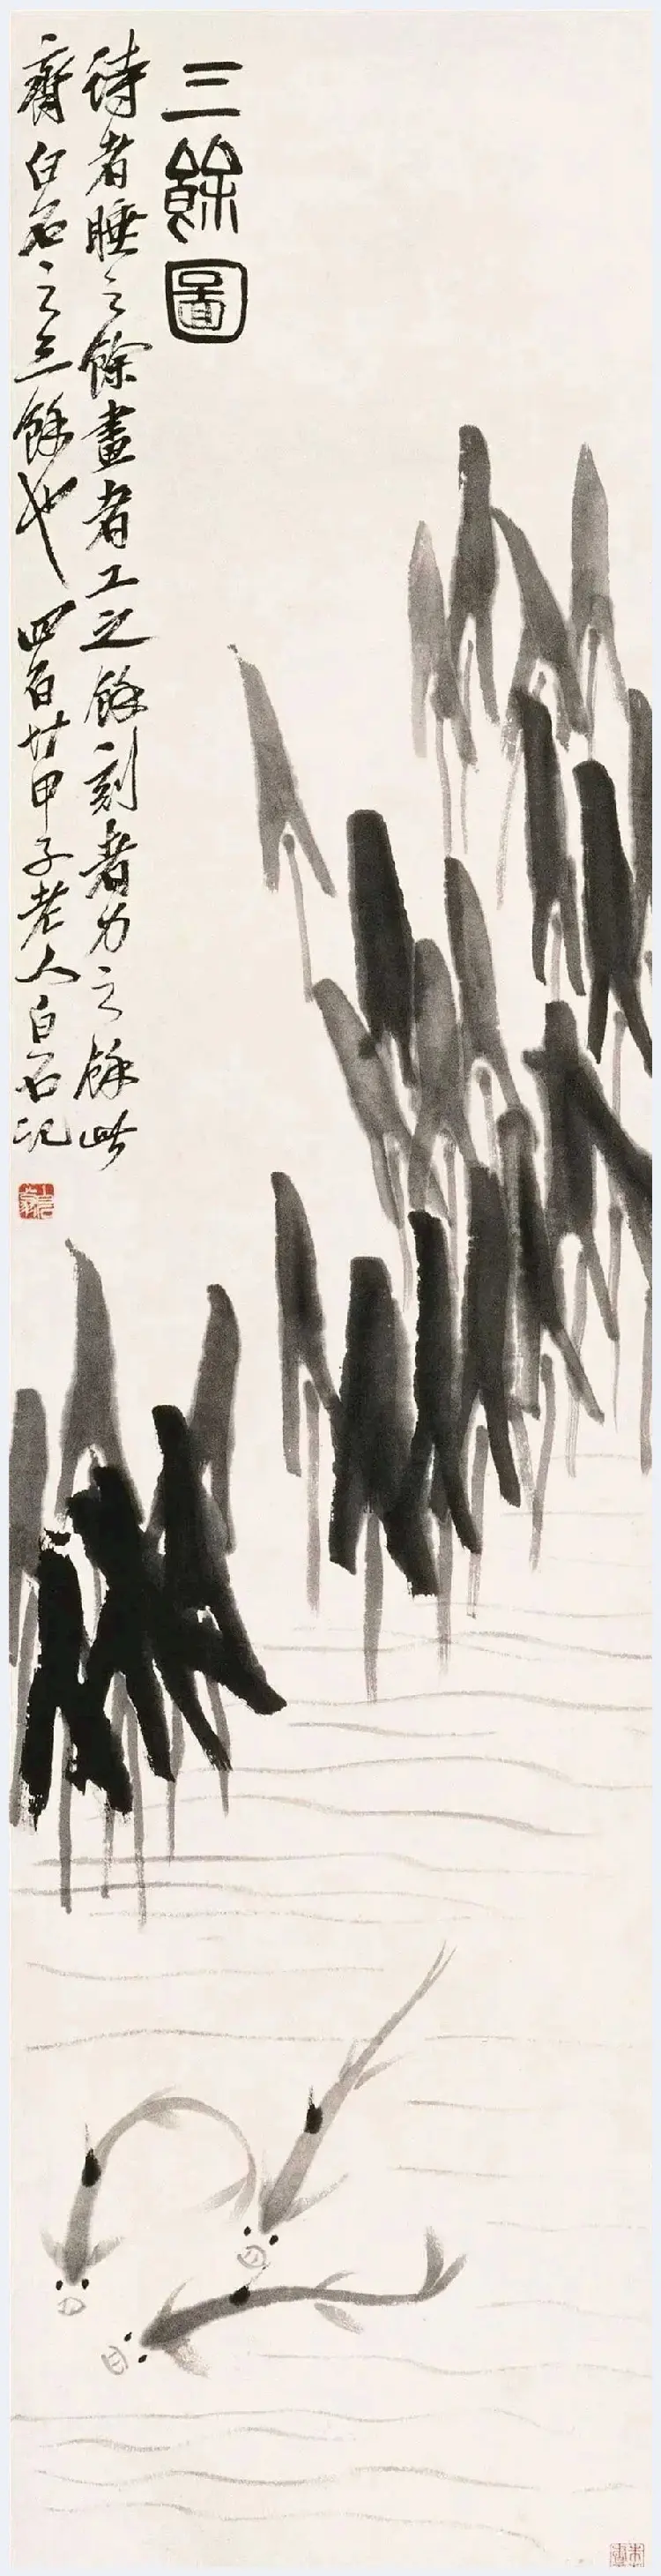 三餘圖
詩者睡之餘畫者工之餘刻者力之餘此
齊白石之三餘也 四百廿甲子老人白石記